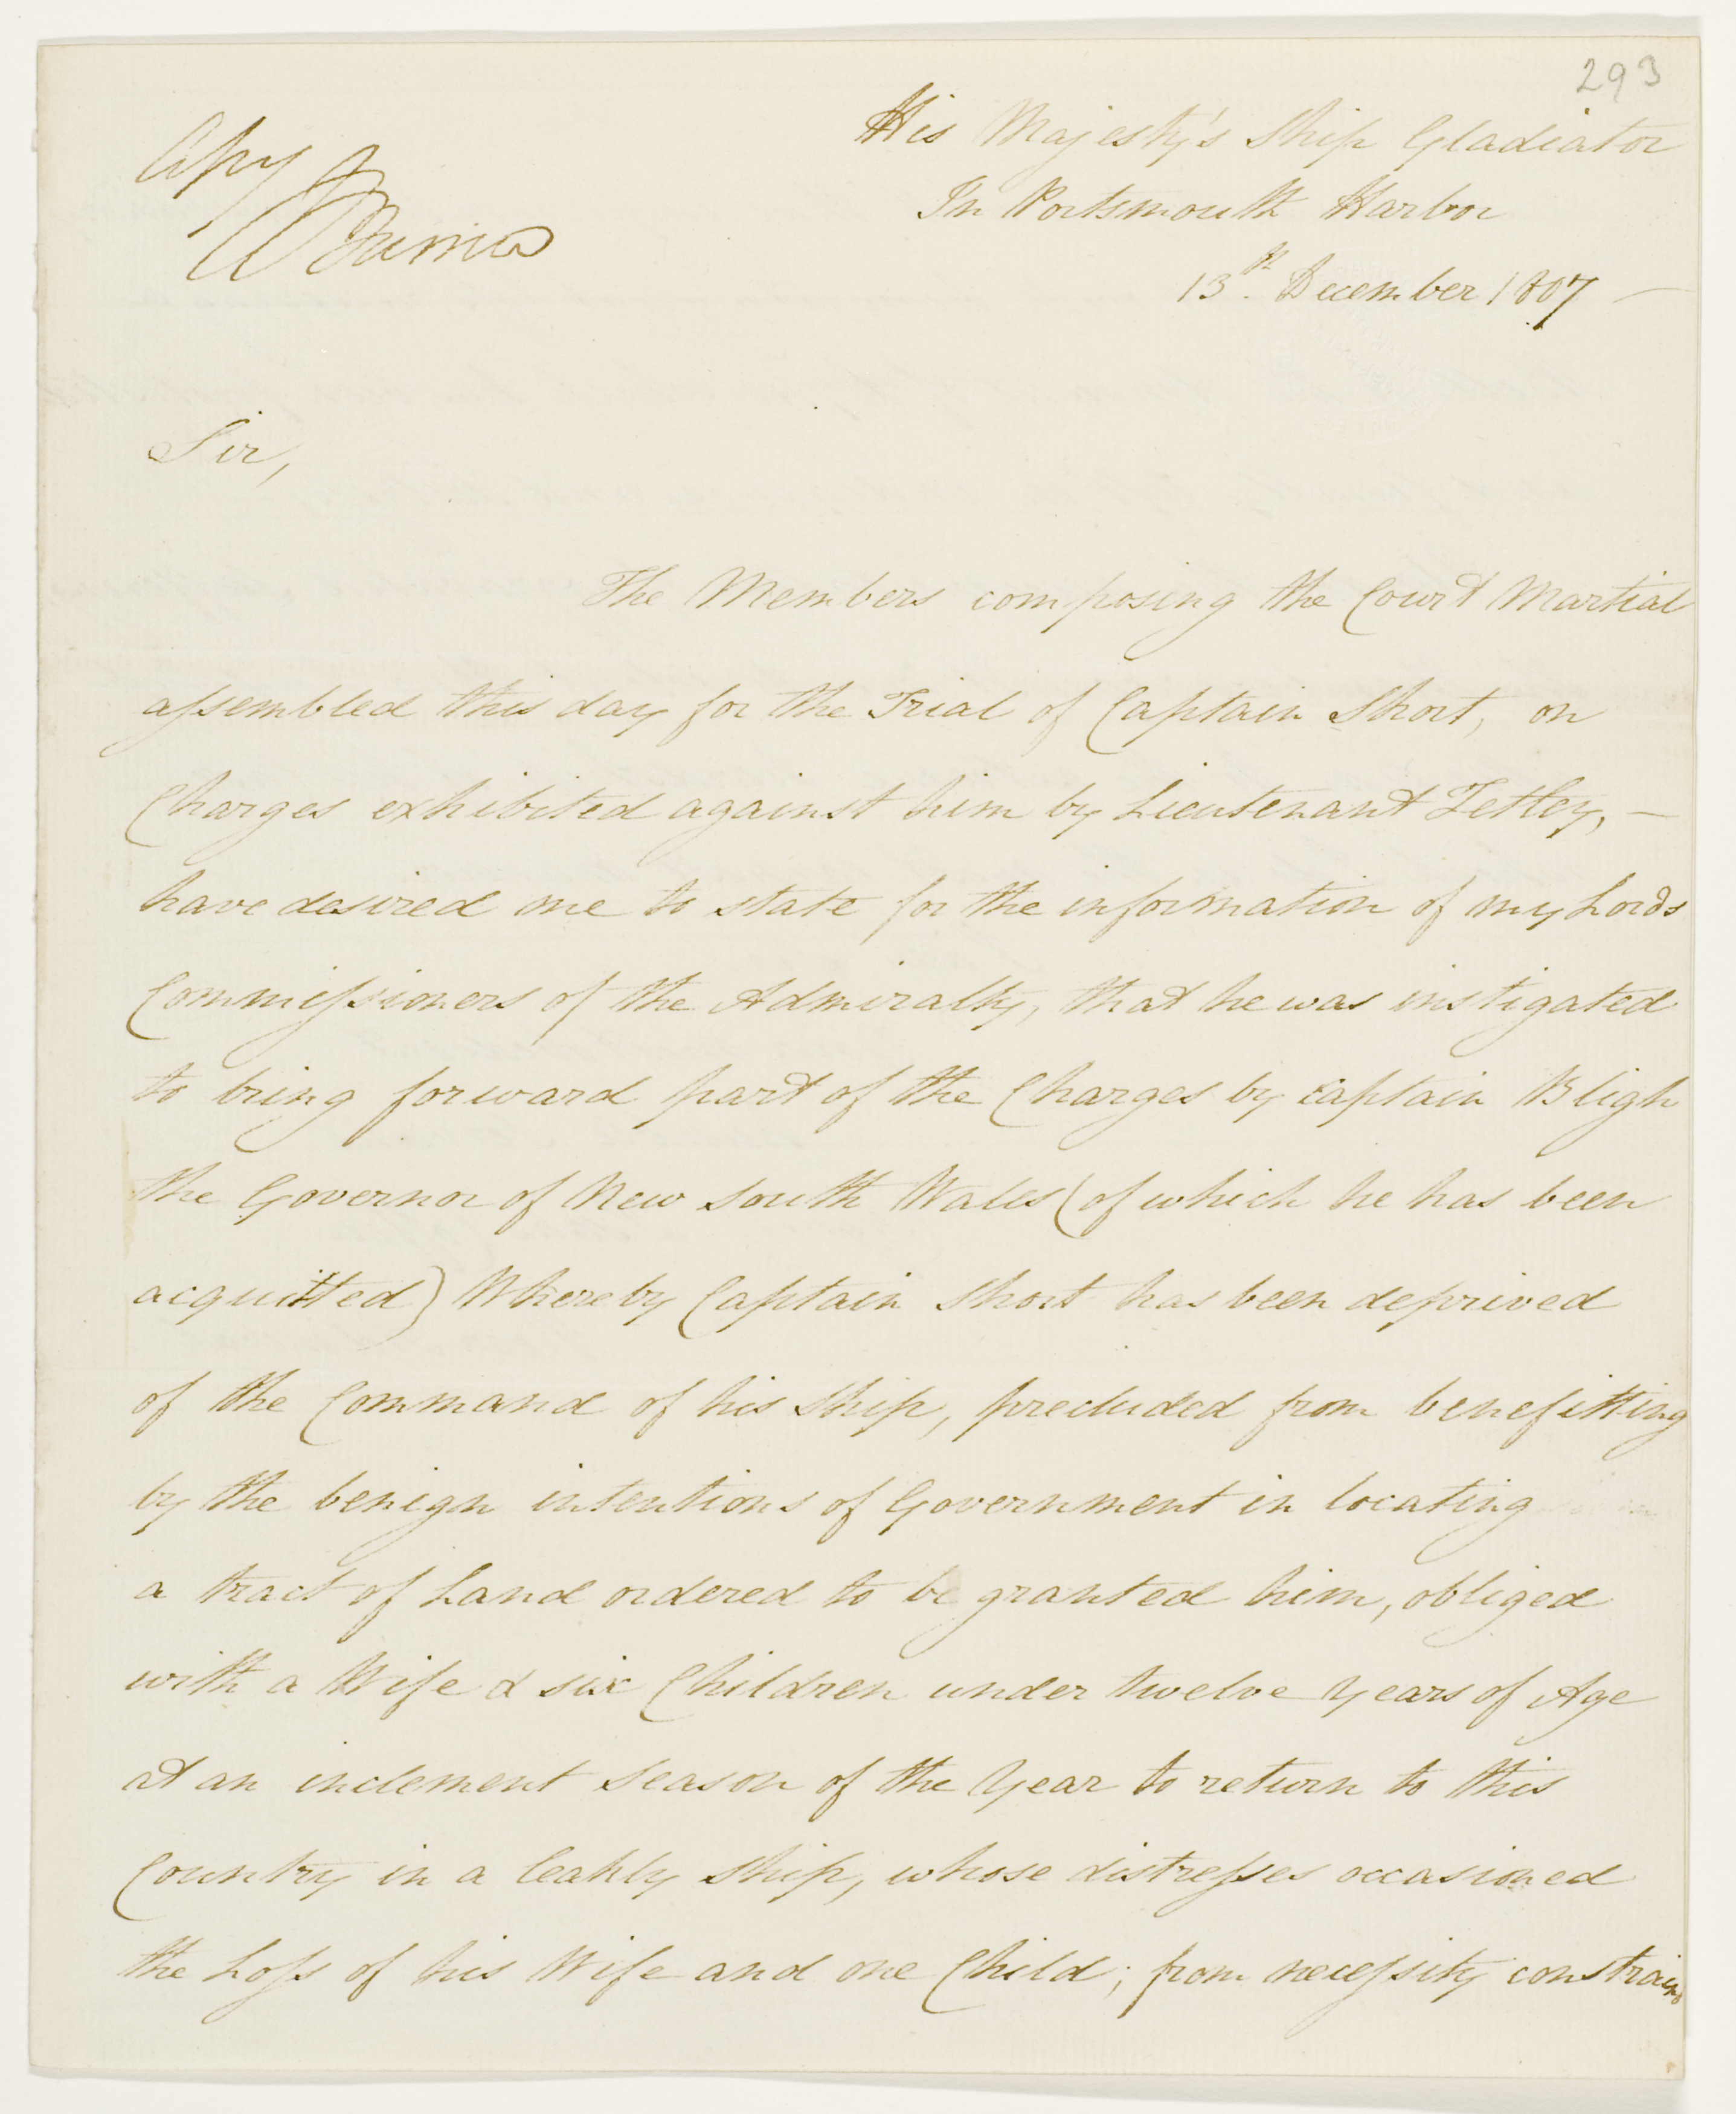 293
His Majesty's Ship Gladiator
In Portsmouth Harbor
13th. December 1807 —
Copy
Sir,
The Members composing the Court Martial
assembled this day for the Trial of Captain Short, on
Charges exhibited against him by Lieutenant Tetley, —
have desired me to state for the information of my Lords
Commissioners of the Admiralty, that he was instigated
to bring forward part of the Charges by Captain Bligh
the Governor of New South Wales (of which he has been
acquitted) Whereby Captain Short has been deprived
of the Command of his Ship, precluded from benefitting
by the benign intentions of Government in locating
a tract of Land ordered to be granted him, obliged
with a Wife & six Children under twelve Years of Age
at an inclement season of the Year to return to this
Country in a leaky Ship, whose distresses occasioned
the Loss of his Wife and one Child; from necessity constrain